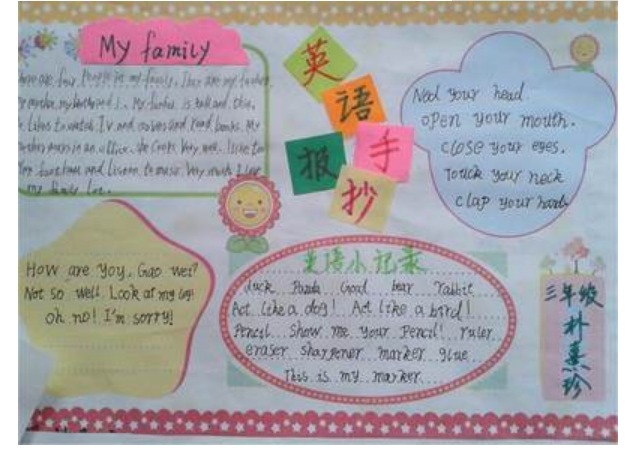 My family
are four People in my family. They are my father,
my mother, my brother and I. My father is tall and thin.
likes to watch TV and movies and read books. My
mother works in an office. She Cooks Very well. likes to
and listen to music. Very much I love
my family
英
语
手
抄
报
Nod your head
open your mouth.
close your eyes.
Touch your neck
clap your hands
How are you, Gao wei?
Not so well. Look at my leg!
oh no! I'm sorry!
英语小记录
duck Panda Goat bear rabbit
Act like a dog! Act like a bird!
Pencil Show me your Pencil! ruler
eraser sharpener marker glue
This is my marker
三年级
朴
珍